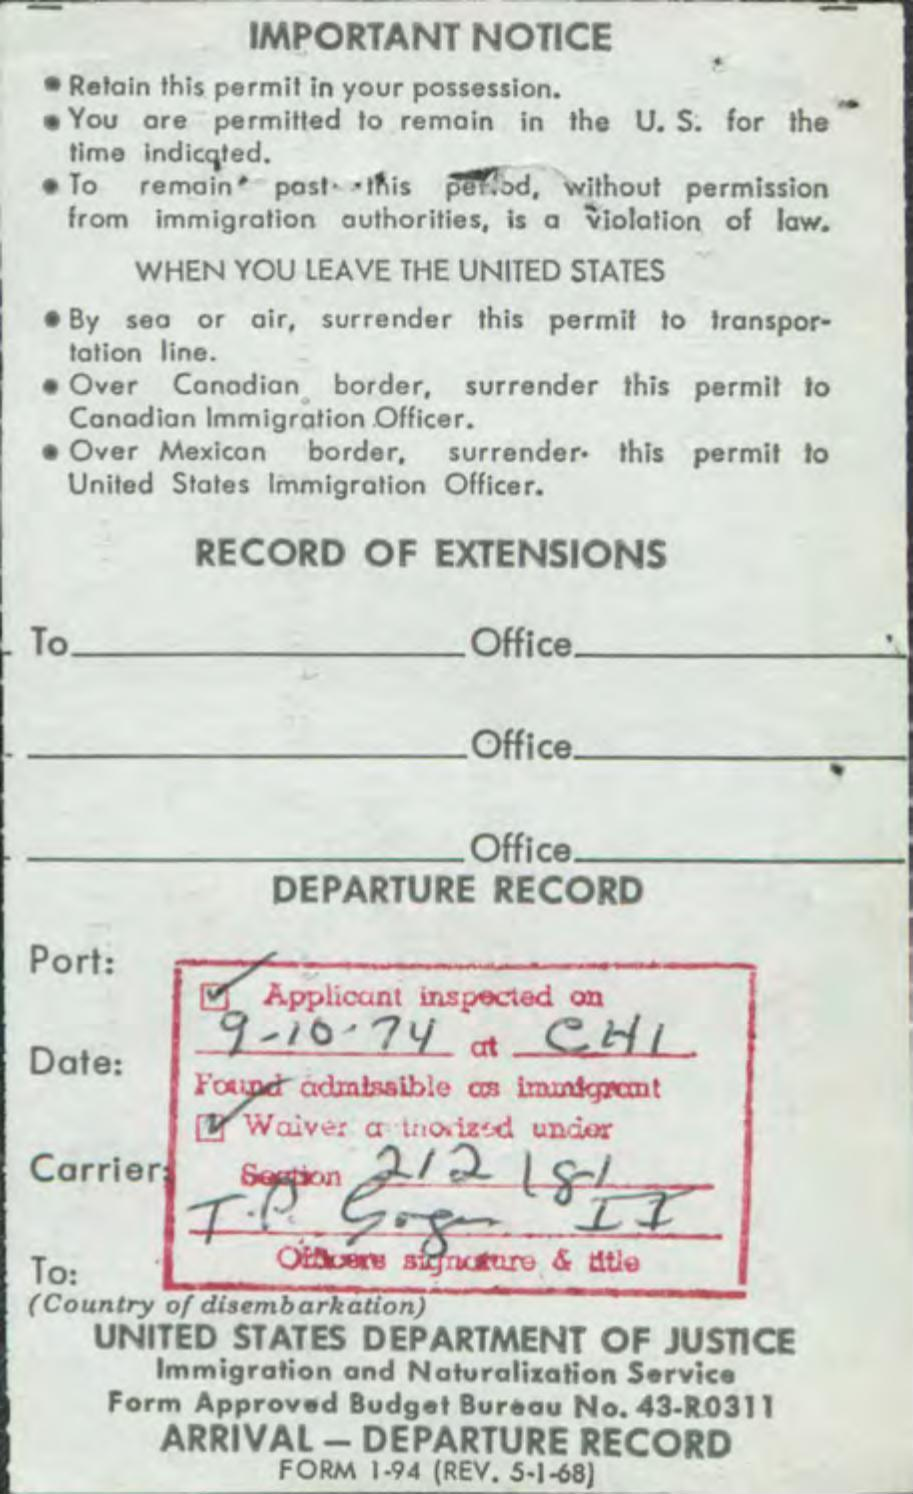 IMPORTANT NOTICE
• Retain this permit in your possession.
• You are permitted to remain in the U. S. for the
time indicated.
• To remain past this period, without permission
from immigration authorities, is a violation of law.
WHEN YOU LEAVE THE UNITED STATES
• By sea or air, surrender this permit to transpor-
tation line.
• Over Canadian border, surrender this permit to
Canadian Immigration Officer.
• Over Mexican border, surrender this permit to
United States Immigration Officer.
RECORD OF EXTENSIONS
To Office
Office
Office
DEPARTURE RECORD
Port:
Applicant inspected on
9-10-74 at CHI
Date:
Found admissible as immigrant
Waiver authorized under
Carrier:
Section 212
T.P. II
Officers signature & title
To:
(Country of disembarkation)
UNITED STATES DEPARTMENT OF JUSTICE
Immigration and Naturalization Service
Form Approved Budget Bureau No. 43-R0311
ARRIVAL – DEPARTURE RECORD
FORM I-94 (REV. 5-1-68)